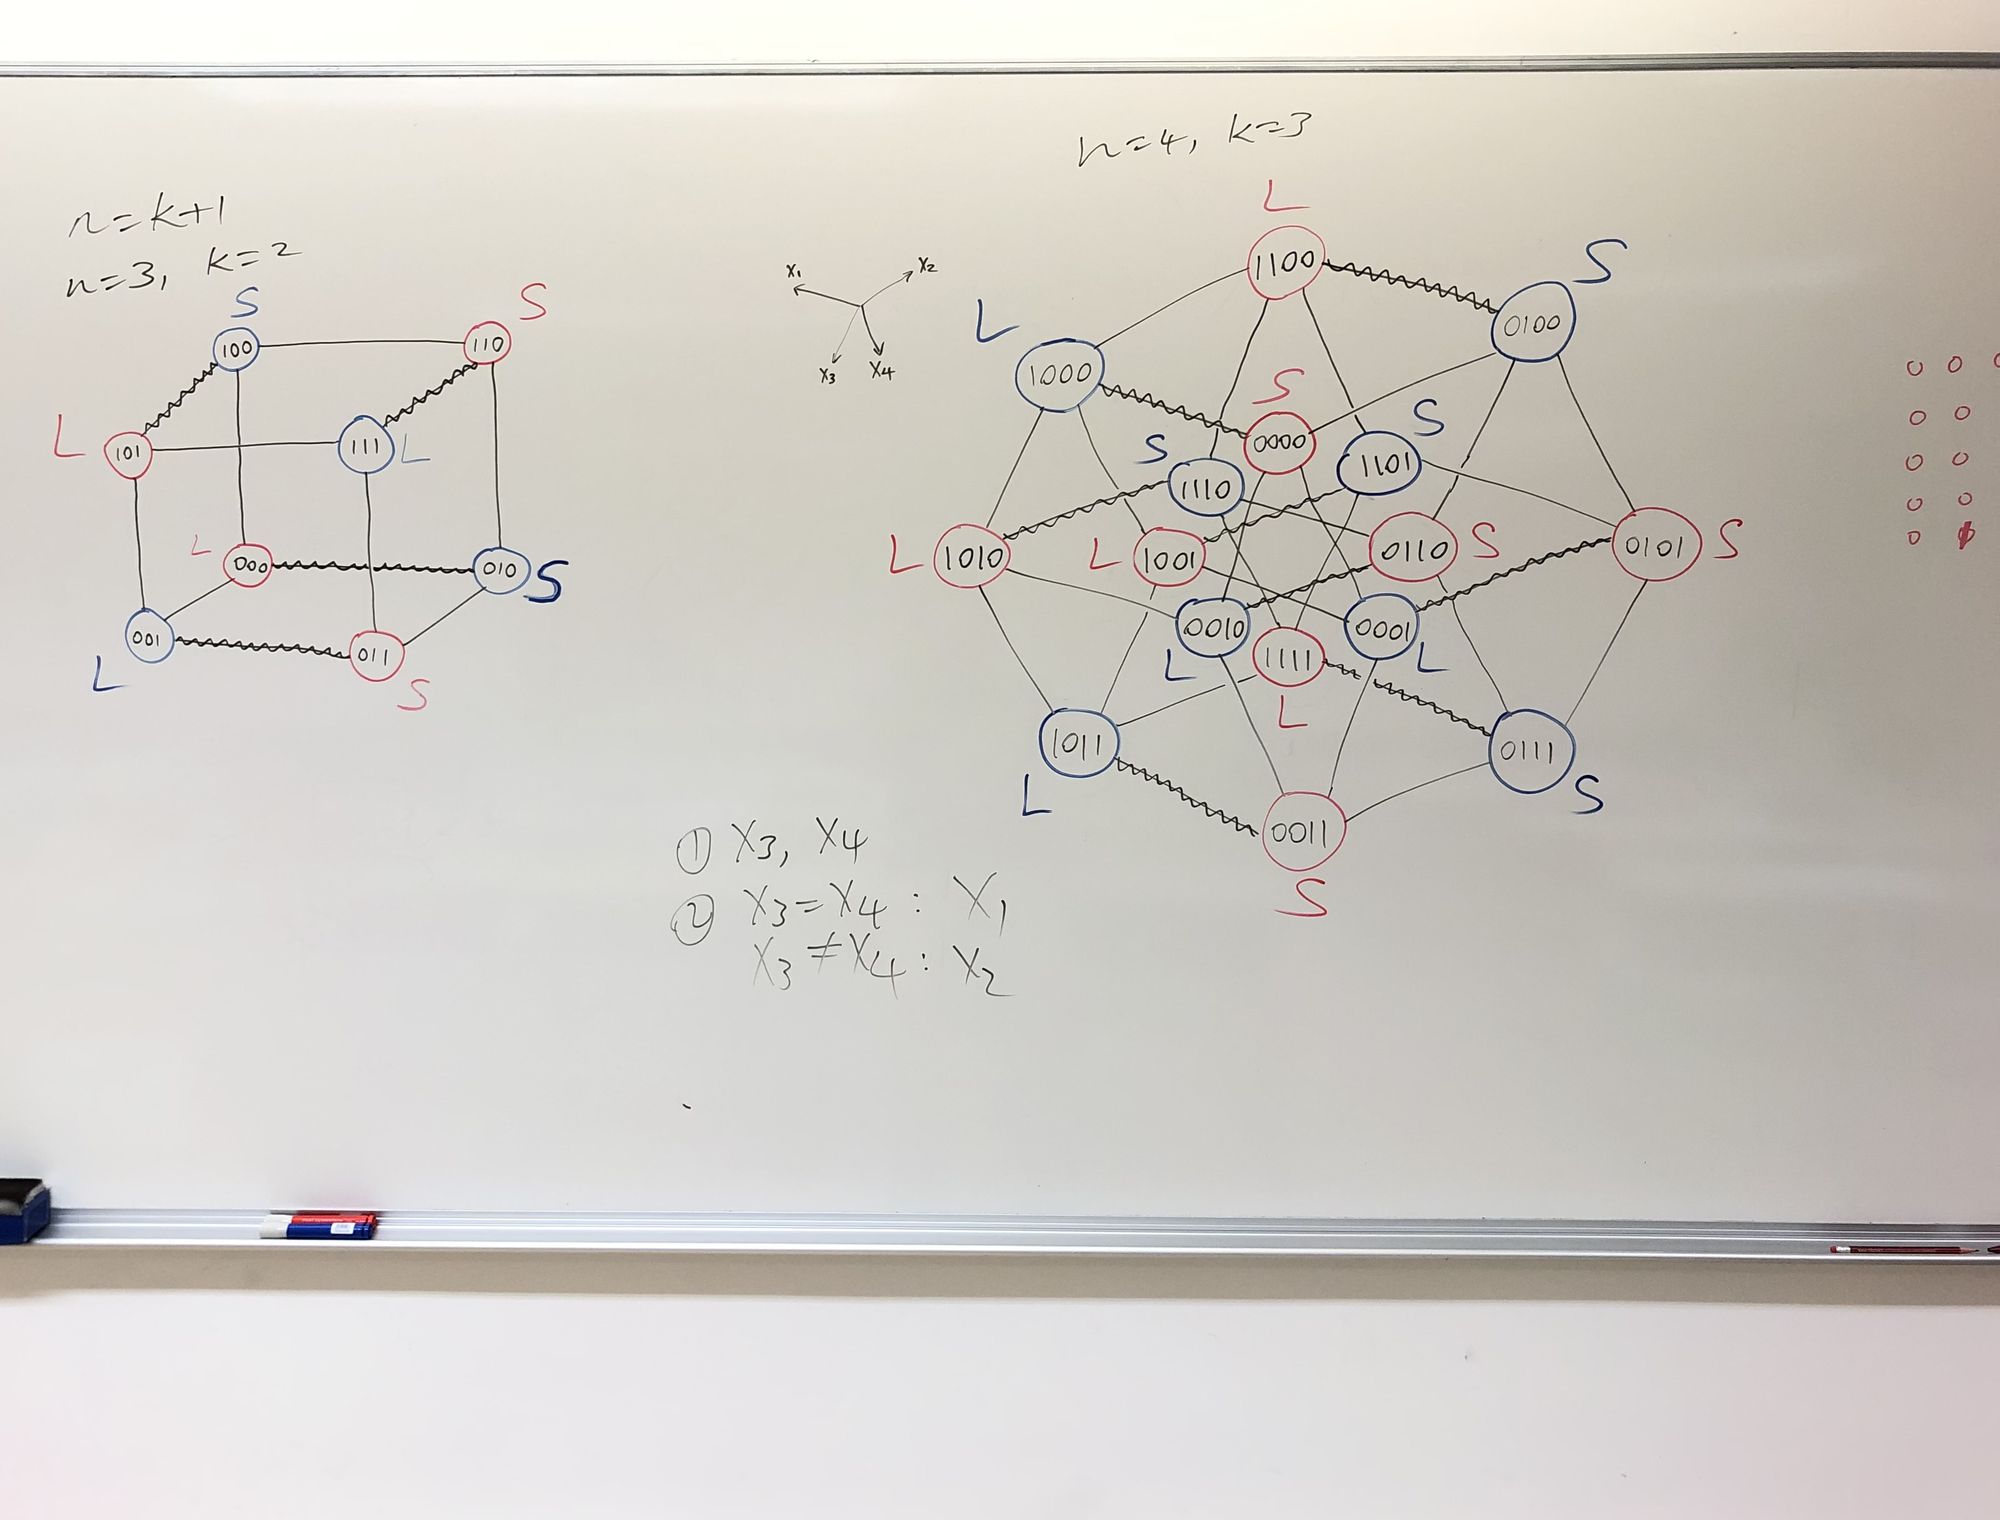 n=k+1
n=3, k=2
S
S
100
110
L
101
111
L
L
000
010
S
001
011
L
S
x₁
x₂
x₃
x₄
n=4, k=3
L
1100
S
0100
L
1000
S
0000
S
1101
S
1110
L
1010
L
1001
0110
S
0101
S
0010
0001
L
1111
L
L
1011
0111
L
S
0011
S
① X₃, X₄
② X₃=X₄ : X₁
X₃≠X₄ : X₂
0 0 0
0 0
0 0
0 0
0